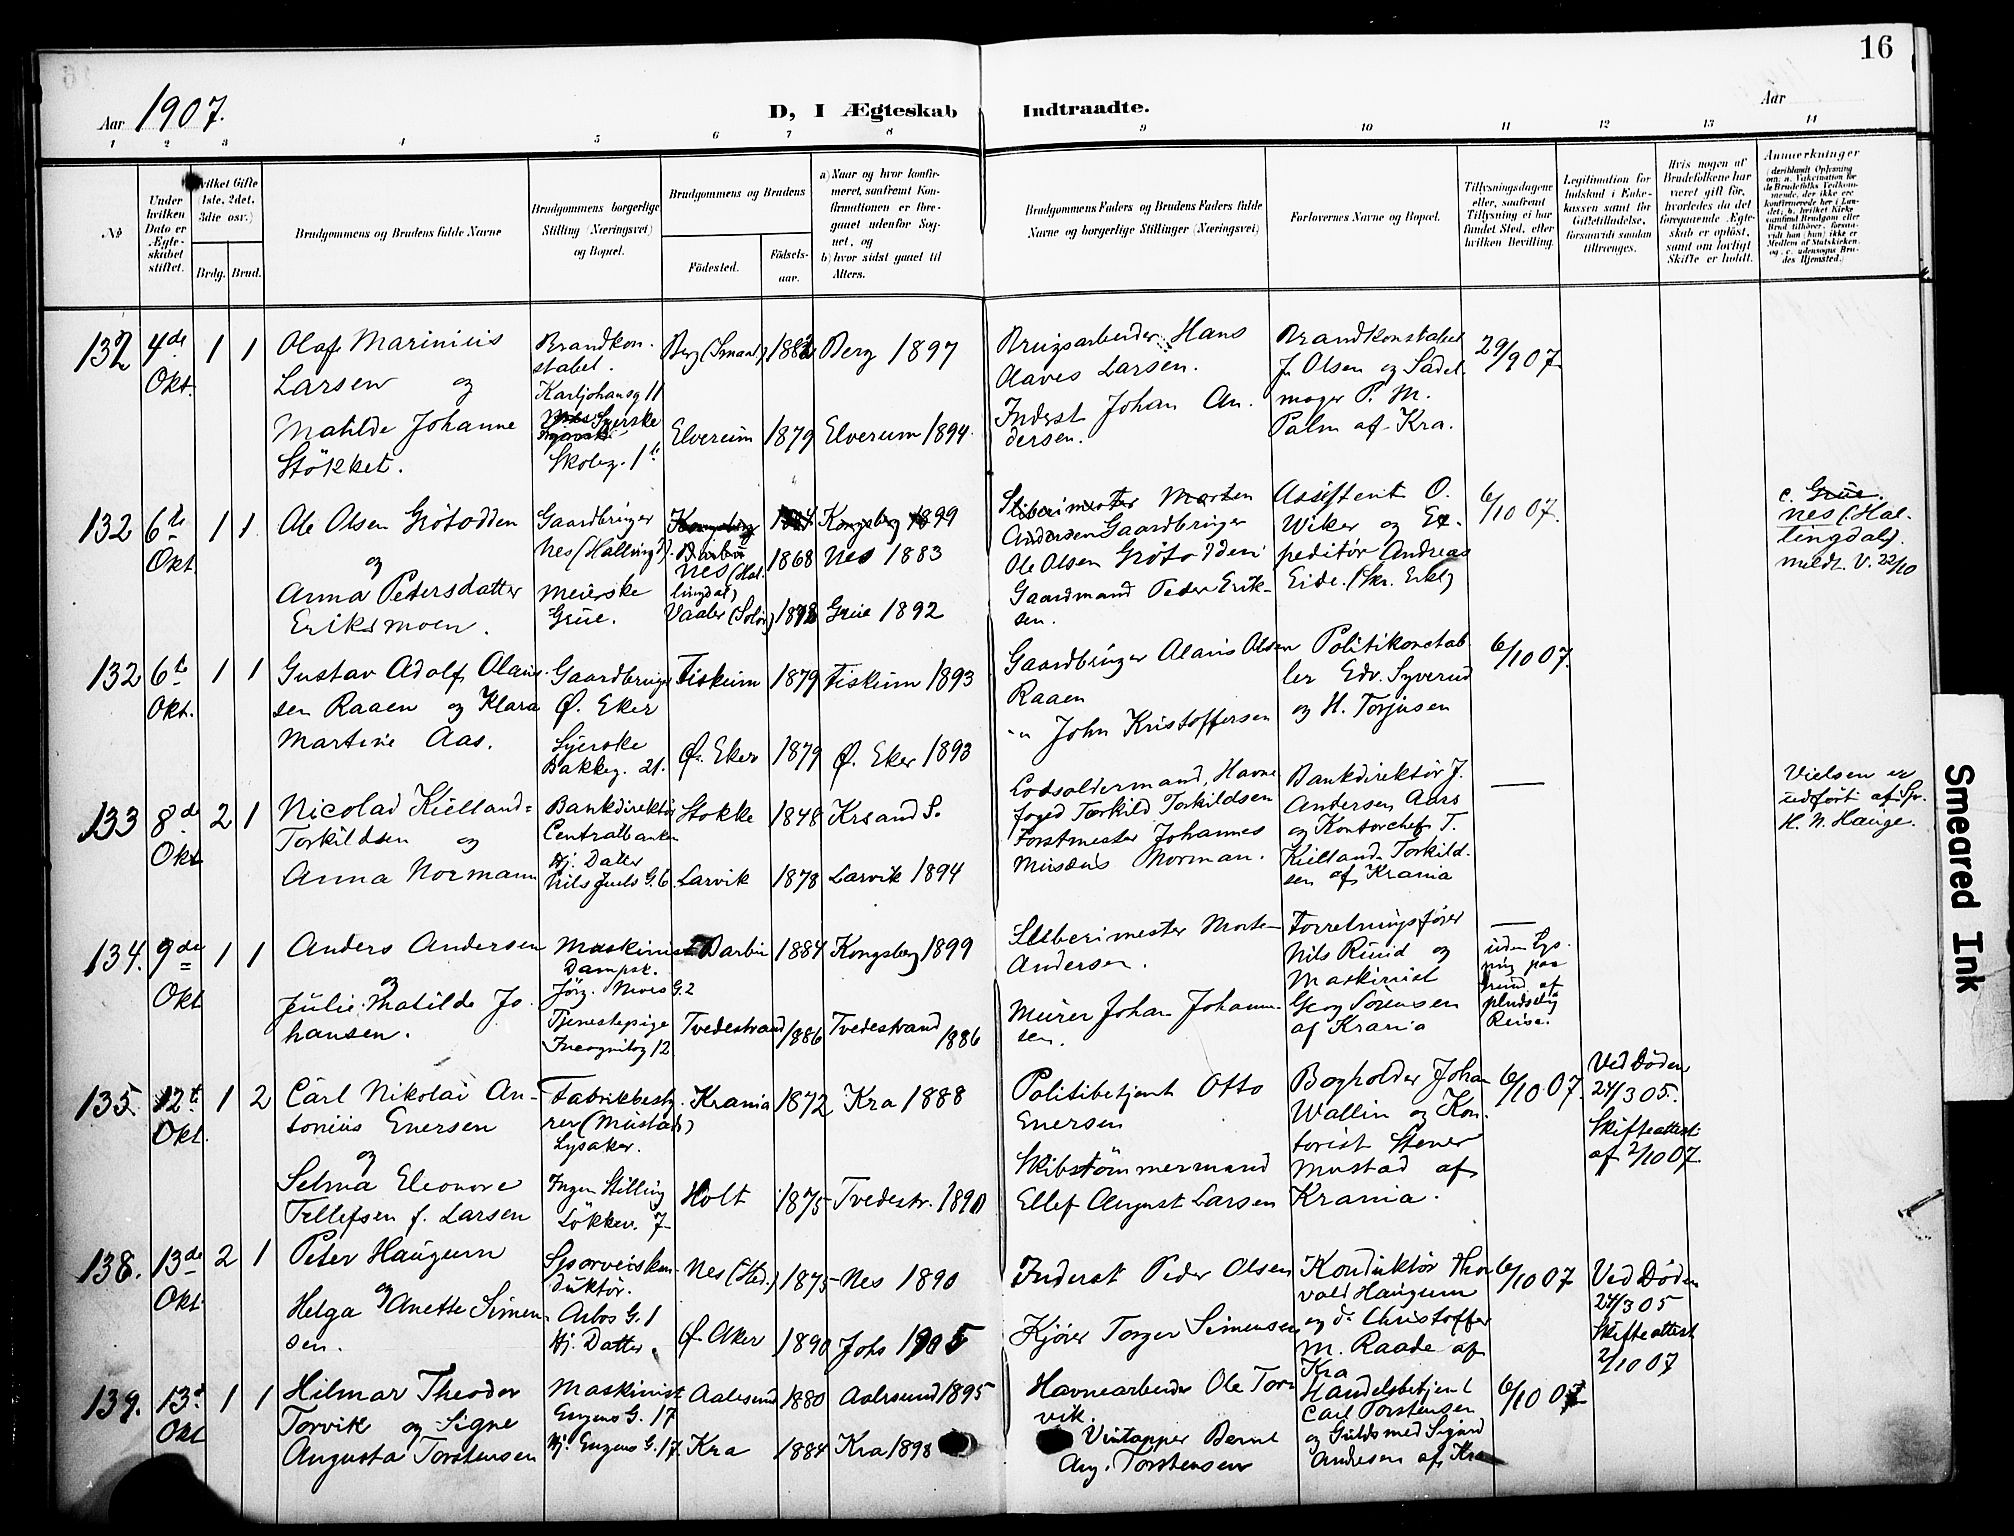 16
Aar 1907.
D, I Ægteskab Indtraadte.
Aar
1 2 3 4 5 6 7 8 9 10 11 12 13 14
No
Under hvilken Dato er Ægteskabet stiftet.
hvilket Gifte (1ste, 2det, 3die osv.)
Brdg. Brud.
Brudgommens og Brudens fulde Navne
Brudgommens borgerlige Stilling (Næringsvei) og Bopæl.
Brudgommens og Brudens
Födested.
Födselsaar.
a) Naar og hvor konfirmeret, saafremt Konfirmationen er foregaaet udenfor Sognet, og
b) hvor sidst gaaet til Alters.
Brudgommens Faders og Brudens Faders fulde Navne og borgerlige Stillinger (Næringsvei)
Forlovernes Navne og Bopæl.
Tillysningsdagene eller, saafremt Tillysning ei har fundet Sted, efter hvilken Bevilling.
Legitimation for Indskud i Enkekassen samt for Giftetilladelse, forsaavidt saadan tiltrænges.
Hvis nogen af Brudefolkene har været gift för, hvorledes da det foregaaende Ægteskab er oplöst, samt om lovligt Skifte er holdt.
Anmerkninger
132 4de Okt. 1 1
Olaf Marinius
Larsen og
Mathilde Johanne
Stökket.
Brandkonstabel.
Karljohansg 11
Syerske
Skoleg. 1 b
Berg (Smaal.) 1882 Berg 1897
Elverum 1879 Elverum 1894.
Brugsarbeider Hans
Olaves Larsen.
Inderst Johan Andersen.
Brandkonstabel
J. Olsen og Sadelmager P. M.
Palm af Kra.
29/9 07.
132 6te Okt 1 1
Ole Olsen Grötodden
og
Anna Petersdatter
Eriksmoen.
Gaardbruger
Nes (Hallingd.).
Meierske
Grue.
Kongsberg 1899
Nes (Hallingdal) 1868 Nes 1883
Vaaler (Solör) 1878 Grue 1892
Sliberimester Morten
Andersen Gaardbruger
Ole Olsen Grötodden
Gaardmand Peder Eriksen.
Assistent O.
Wiker og Expeditör Andreas
Eide. (Skr. Erkl)
6/10 07.
c. Grue.
Nes (Hallingdal).
meldt. V. 22/10
132 6te Okt. 1 1
Gustav Adolf Olaussen Raaen og Klara
Martine Aas.
Gaardbruger
Ø. Eker
Syerske
Bakkeg. 21.
Fiskum 1879 Fiskum 1893
Ø. Eker 1879 Ø. Eker 1893
Gaardbruger Olaus Olsen
Raaen
" John Kristoffersen
Politikonstabler Edv. Syverud
og H. Torjusen
6/10 07.
133 8de Okt 2 1
Nicolai Kielland-
Torkildsen og
Anna Normann
Bankdirektör
Centralbanken
Hj. Datter
Nils Juels G. 6.
Stokke 1848 Krsand S.
Larvik 1878 Larvik 1894
Lodsoldermand, Havnefoged Tarkild Torkildsen
Forstmester Johannes
Musæus Norman.
Bankdirektör J.
Andersen Aars
og Kontorchef T.
Kielland-Torkildsen af Krania
—
Vielsen er
udfört af Sp.
H. N. Hauge.
134. 9de Okt 1 1
Anders Andersen
og
Julie Matilde Johansen.
Maskinist
Dampsk.
Jörg. Moes G. 2
Tjenestepige
Incognitog 12
Darbu 1884 Kongsberg 1899
Tvedestrand 1886 Tvedestrand 1886
Sliberimester Morten
Andersen.
Murer Johan Johannsen.
Forretningsförer
Nils Ruud og
Maskinist
Georg Sörensen
af Krania
—
uden Lysning paa
Grund af
pludselig
Reise.
135. 12te Okt. 1 2
Carl Nikolai Antonius Enersen
og
Selma Eleonore
Tellefsen f. Larsen
Fabrikbestyrer (Mustads)
Lysaker.
Ingen Stilling
Lökkev. 7
Krania 1872 Kra 1888
Holt 1875 Tvedestr. 1890
Politibetjent Otto
Enersen
Skibstömmermand
Ellef August Larsen
Bogholder Johan
Wallin og Kontorist Stener
Mustad af
Krania.
6/10 07.
Ved Döden
24/3 05.
Skifteattest
af 2/10 07
138. 13de Okt. 2 1
Peter Haugum
og
Helga Anette Simensen.
Sporveiskonduktör.
Arbos G. 1
Hj. Datter.
Nes (Hed.) 1875 Nes 1890
Ø. Aker 1890 Johs 1905
Inderst Peder Olsen
Kjörer Torger Simensen
Konduktör Thorvald Haugum
og do Christoffer
M. Raade af
Kra
6/10 07
Ved Döden
24/3 05
Skifteattest
2/10 07
139. 13d Okt 1 1
Hilmar Theodor
Torvik og Signe
Augusta Torstensen
Maskinist
Eugens G. 17
Hj. Eugens G. 17
Aalesund 1880 Aalesund 1895
Kra 1884 Kra 1898
Havnearbeider Ole Torvik.
Vintapper Bernt
Aug. Torstensen
Handelsbetjent
Carl Torstensen
og Guldsmed Sigurd
Andresen af Kra
6/10 07
Smeared Ink